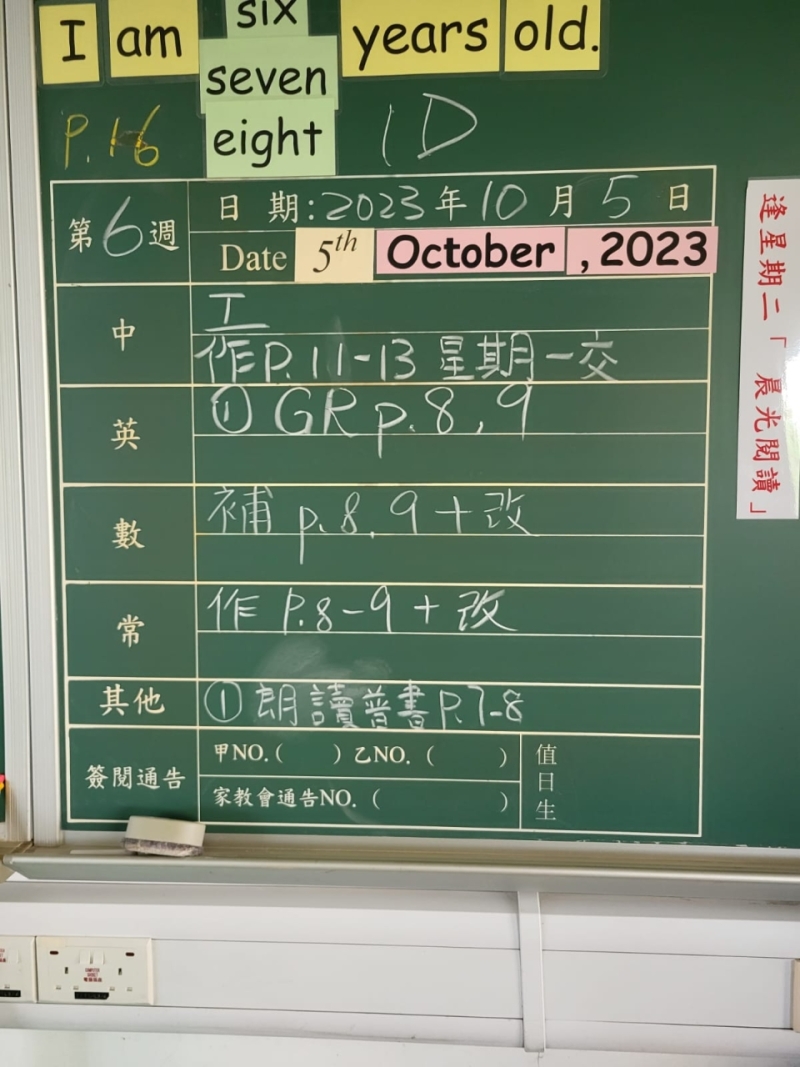 six
I am seven years old.
eight
P.16
1D
第6週
日 期:2023年10月5日
Date 5th October , 2023
中
工
作P.11-13 星期一交
英
① GR p.8,9
數
補 p.8,9+改
常
作 P.8-9+改
其他
① 朗讀普書P.7-8
簽閱通告
甲NO.( ) 乙NO. ( )
家教會通告NO. ( )
值日生
逢星期二「 晨光閱讀」